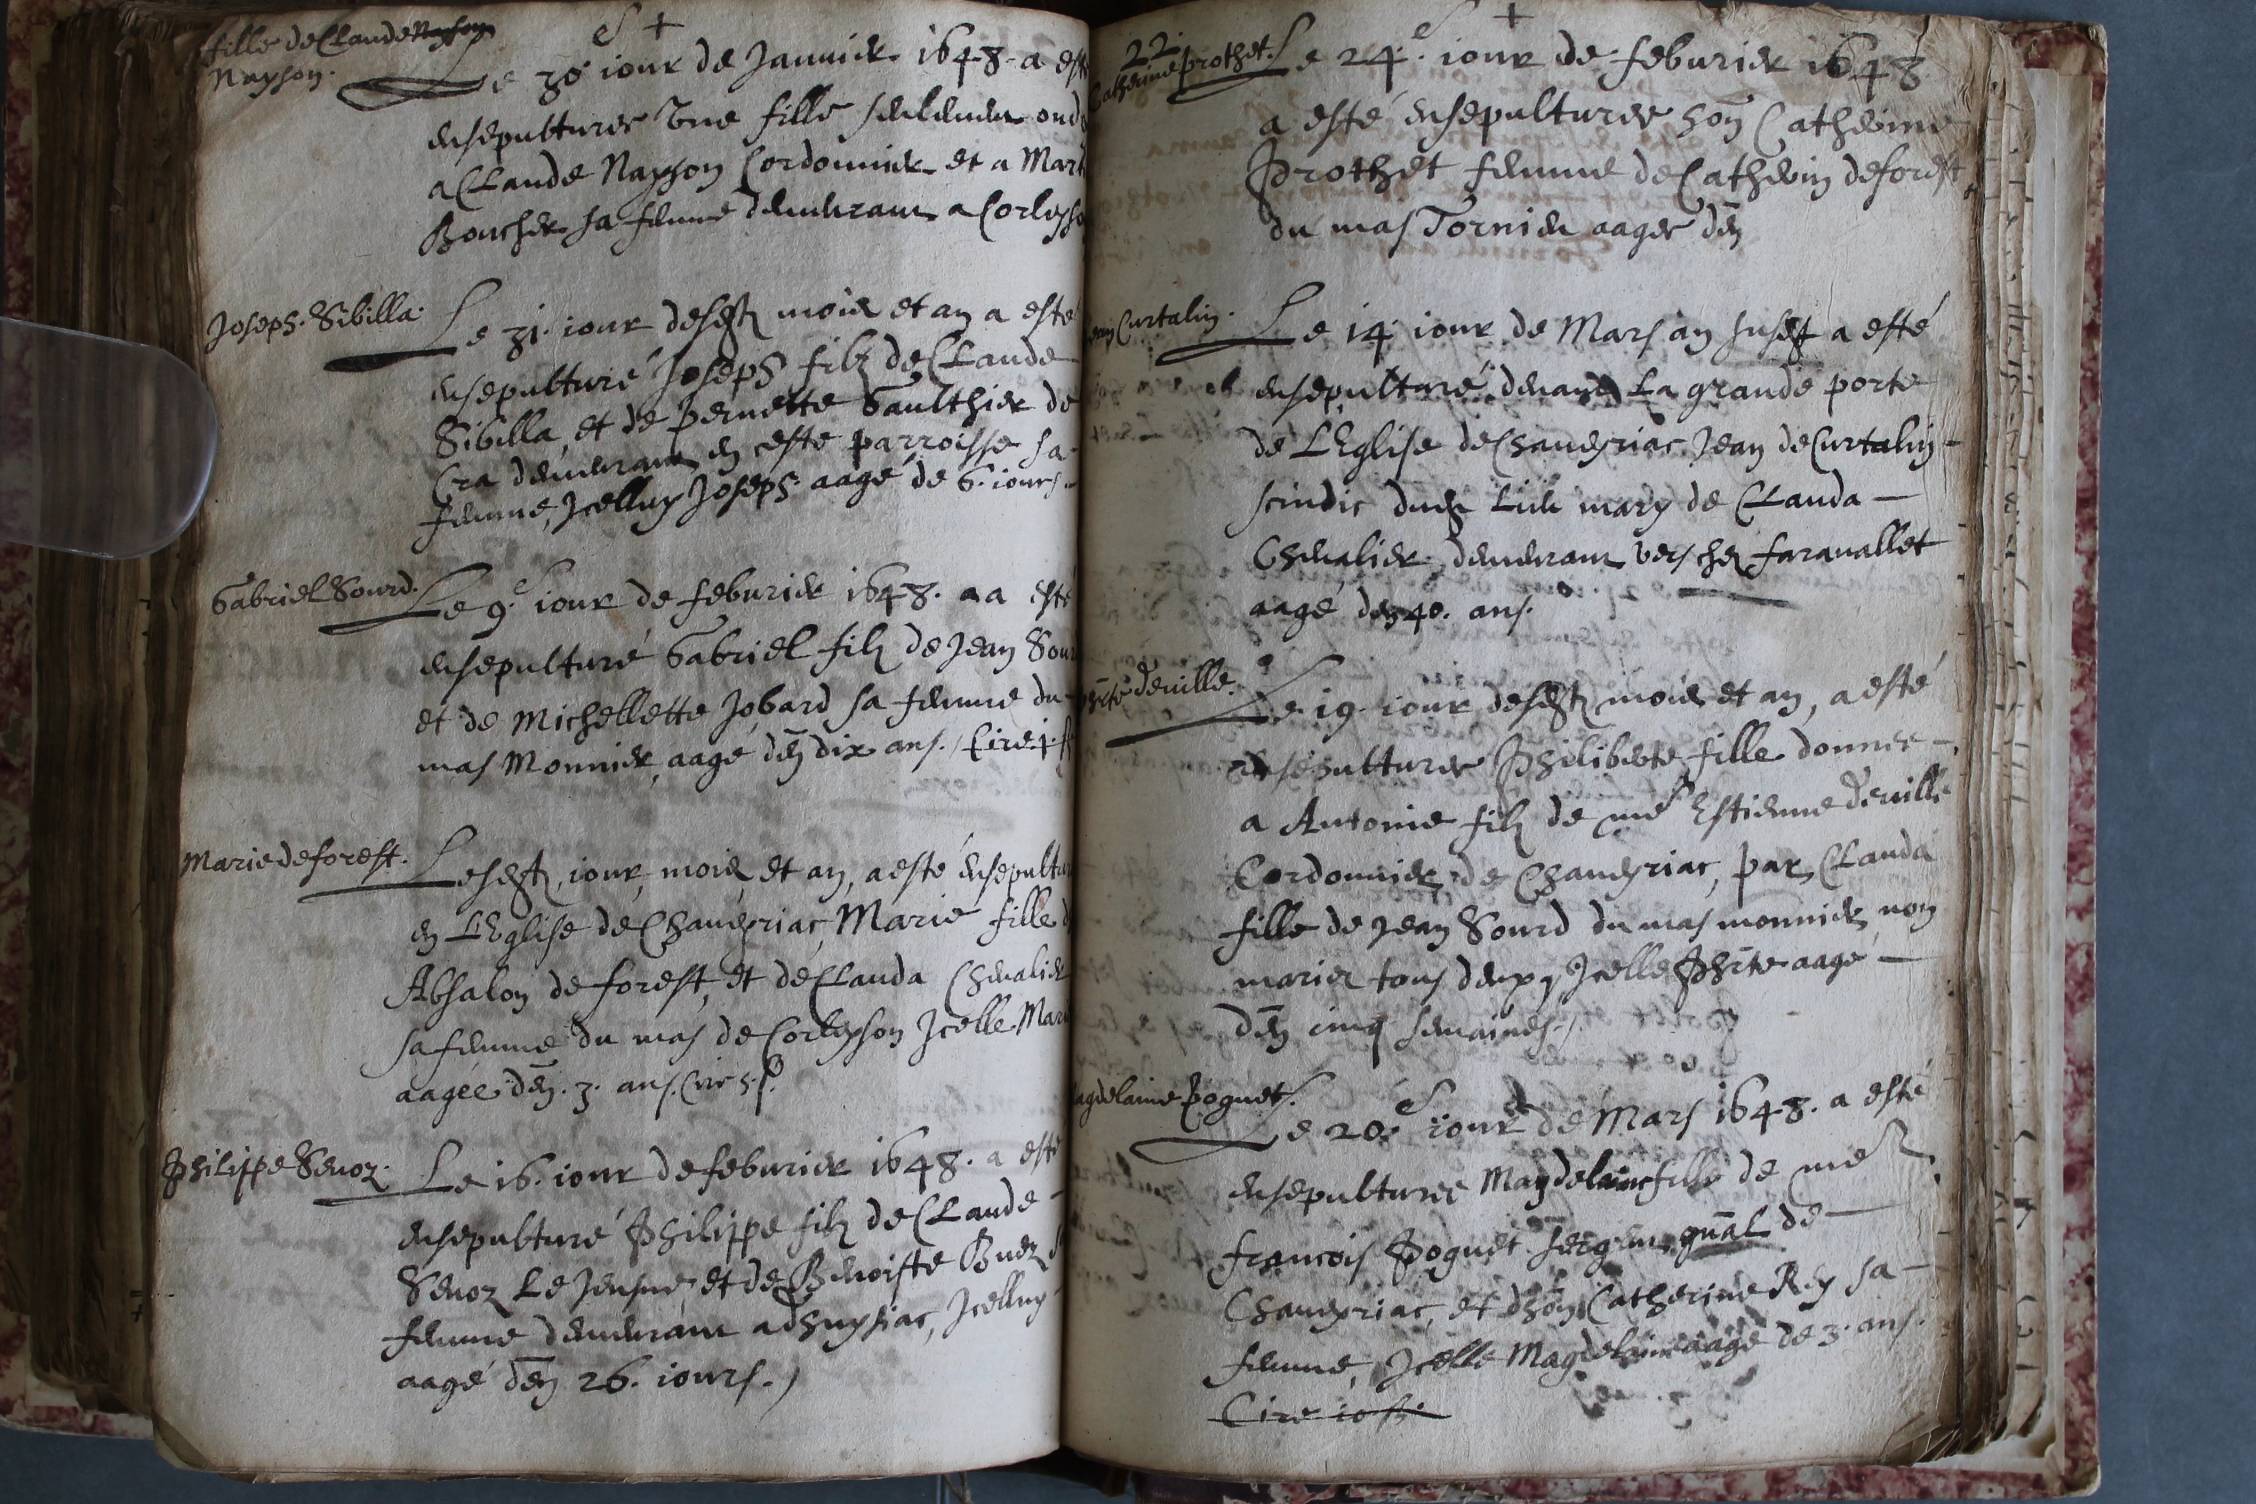 fille de Claude Nayson
Nayson.
Le 30 iour de Januier 1648. a esté
ensepulturee vne fille seulement ond
a Claude Nayson Cordonnier et a Mar
Boucher sa femme demeurant a Corleyso
Joseph. Sibilla.
Le 31. iour desd. mois et an a esté
ensepulturé Joseph filz de Claude
Sibilla, et de Pernette Gaulthier de
Cra demeurant en ceste parroisse sa
femme, Jcelluy Joseph aagé de 6. iours.
Gabriel Sourd.
Le 9.e iour de feburier 1648. a a esté
ensepulturé Gabriel filz de Jean Sour
et de Michellette Jobard sa femme du
mas Monnier, aagé d'en dix ans. / Cire
Marie deforest.
Lesd. iour, mois et an, a esté ensepultur
en L'Eglise de Chaueyriac, Marie fille d
Absalon deforest, et de Clauda Cheualier
sa femme du mas de Corleyson Jcelle Mari
aagée d'en. 3. ans. Cire
Philippe Seuoz.
Le 16. iour de feburier 1648. a esté
ensepulturé Philippe filz de Claude
Seuoz Le Jeusne, et de Benoiste Buez s
femme demeurant a Dhuysiac, Jcelluy
aagé d'en 26. iours. /
22.
Catherine Prothet.
Le 24.e iour de feburier 1648
a esté ensepulturee hon Catherine
Prothet femme de Catherin deforest
du mas Tornier aagee d'en
Jean Curtalin.
Le 14. iour de Mars an susd. a esté
ensepulturé deuant La grande porte
de L'Eglise de Chaueyriac Jean de Curtalin
scindic dud. Lieu mary de Clauda
Cheualier demeurant vers chez farauallet
aagé d'en 40. ans.
Phrte deuille.
Le 19. iour desd. mois et an, a esté
ensepulturee Philiberte fille donnee
a Antonie filz de me Estienne deuille
Cordonnier de Chaueyriac, par Clauda
fille de Jean Sourd du mas monnier non
mariez tous deux, Jcelle Phrte aagé
d'en cinq semaines. /
Magdelaine Poguet.
Le 20.e iour de Mars 1648. a esté
ensepulturee Magdelaine fille de me
francois Poguet sergent gnal de
Chaueyriac, et d'hon Catherine Rey sa
femme, Jcelle Magdelaine aagé de 3. ans.
Cire